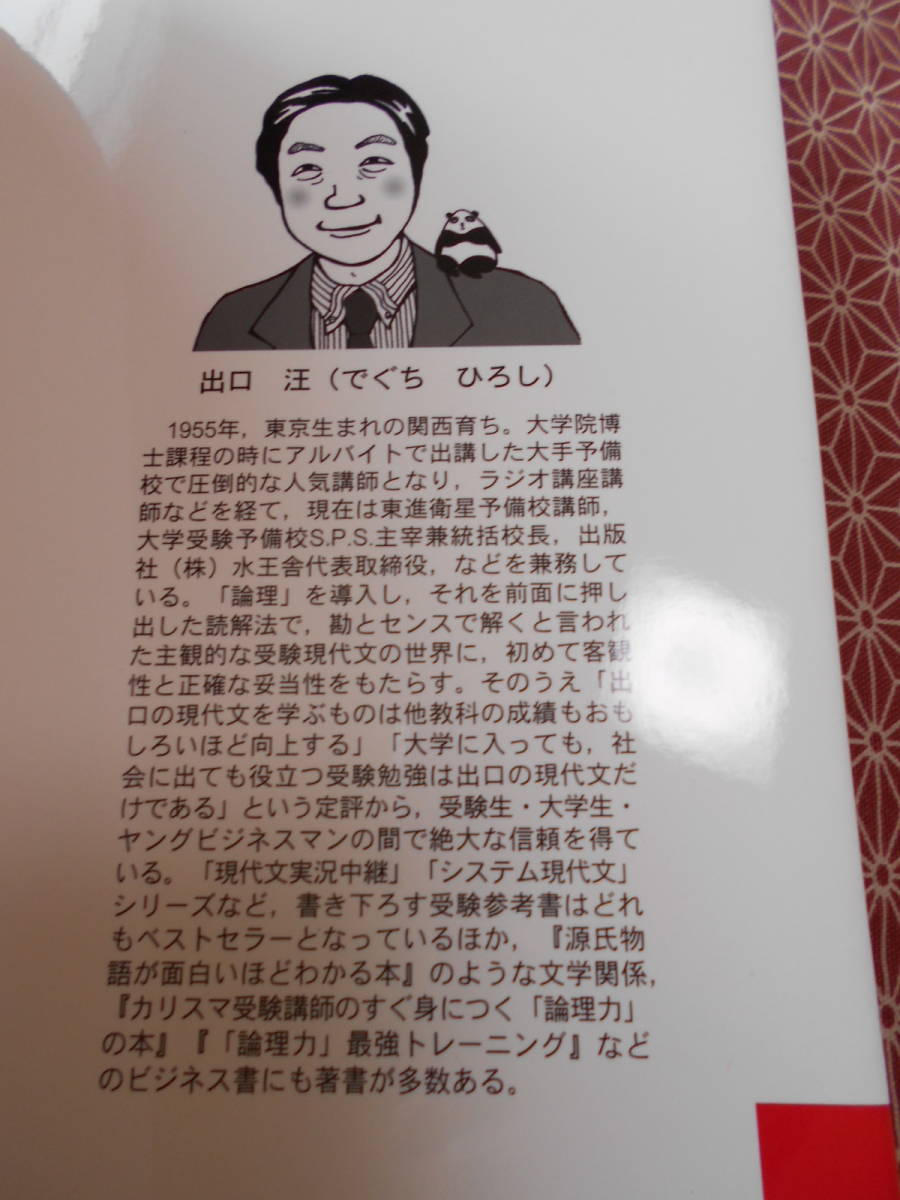 出口　汪（でぐち　ひろし）
1955年，東京生まれの関西育ち。大学院博
士課程の時にアルバイトで出講した大手予備
校で圧倒的な人気講師となり，ラジオ講座講
師などを経て，現在は東進衛星予備校講師，
大学受験予備校S.P.S.主宰兼統括校長，出版
社（株）水王舎代表取締役，などを兼務して
いる。「論理」を導入し，それを前面に押し
出した読解法で，勘とセンスで解くと言われ
た主観的な受験現代文の世界に，初めて客観
性と正確な妥当性をもたらす。そのうえ「出
口の現代文を学ぶものは他教科の成績もおも
しろいほど向上する」「大学に入っても，社
会に出ても役立つ受験勉強は出口の現代文だ
けである」という定評から，受験生・大学生・
ヤングビジネスマンの間で絶大な信頼を得て
いる。「現代文実況中継」「システム現代文」
シリーズなど，書き下ろす受験参考書はどれ
もベストセラーとなっているほか，『源氏物
語が面白いほどわかる本』のような文学関係，
『カリスマ受験講師のすぐ身につく「論理力」
の本』『「論理力」最強トレーニング』など
のビジネス書にも著書が多数ある。